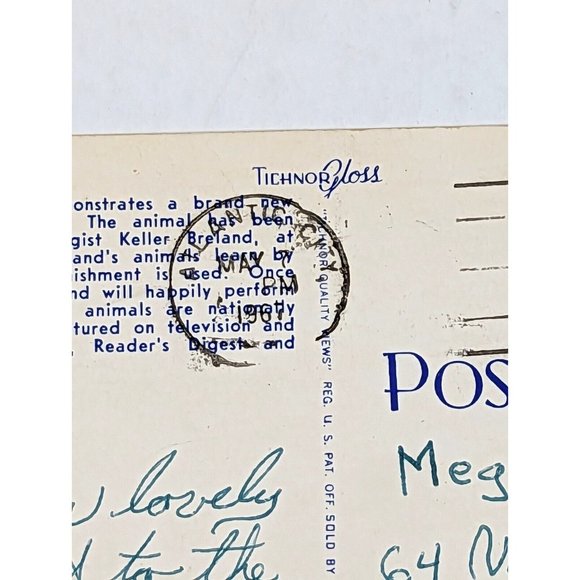 TICHNOR Gloss
onstrates a brand new
The animal has been
gist Keller Breland, at
and's animals learn by
ishment is used. Once
nd will happily perform
animals are nationally
tured on television and
, Reader's Digest and
ATLANTIC CITY
MAY 7
PM
1967
"TICHNOR QUALITY VIEWS" REG. U. S. PAT. OFF. SOLD BY
POS
lovely
to the
Meg
64 N